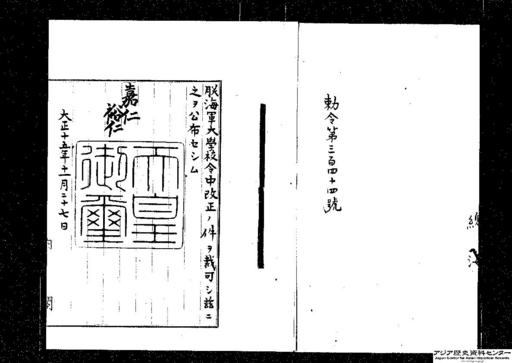 勅令第三百四十四號
朕海軍大學校令中改正ノ件ヲ裁可シ茲ニ
之ヲ公布セシム
嘉仁
裕仁
天皇
御璽
大正十五年十一月二十七日
内閣
アジア歴史資料センター
Japan Center for Asian Historical Records